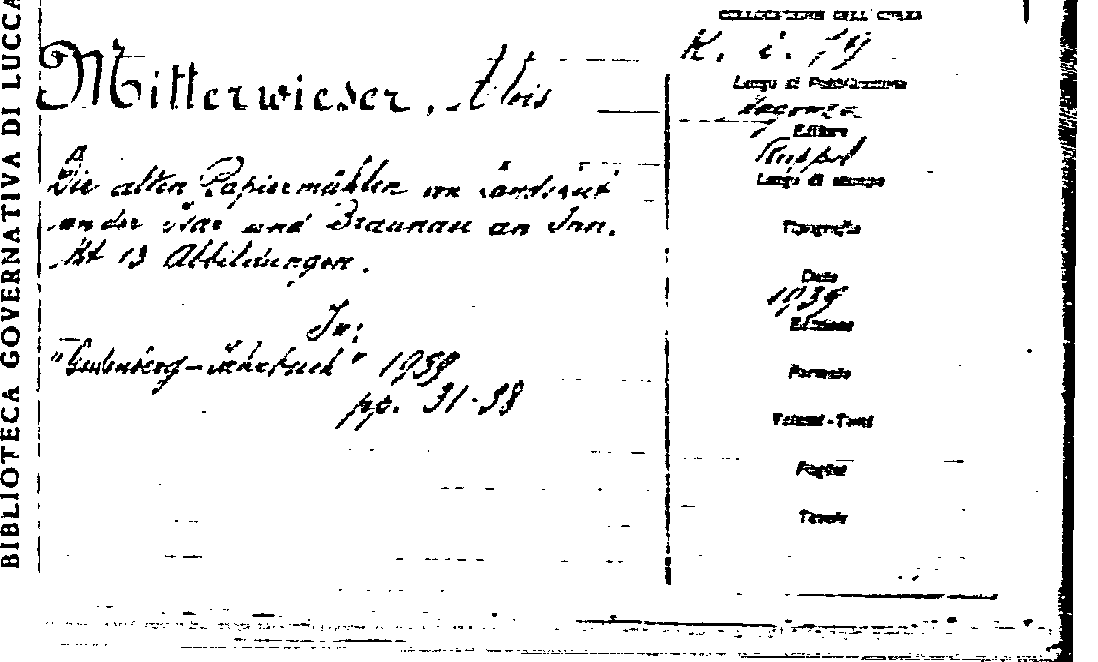 BIBLIOTECA GOVERNATIVA DI LUCCA
COLLOCAZIONE DELL'OPERA
K. i. 79
Mitterwieser, Alois
Luogo di Pubblicazione
Editore
Ruppel
Luogo di stampa
Die alten Papiermühlen von Landshut
an der Isar und Braunau an Inn.
Mit 13 Abbildungen.
Tipografia
Data
1939
Edizione
In:
"Gutenberg-Jahrbuch" 1939
pp. 31-38
Formato
Volumi-Tomi
Pagine
Tavole